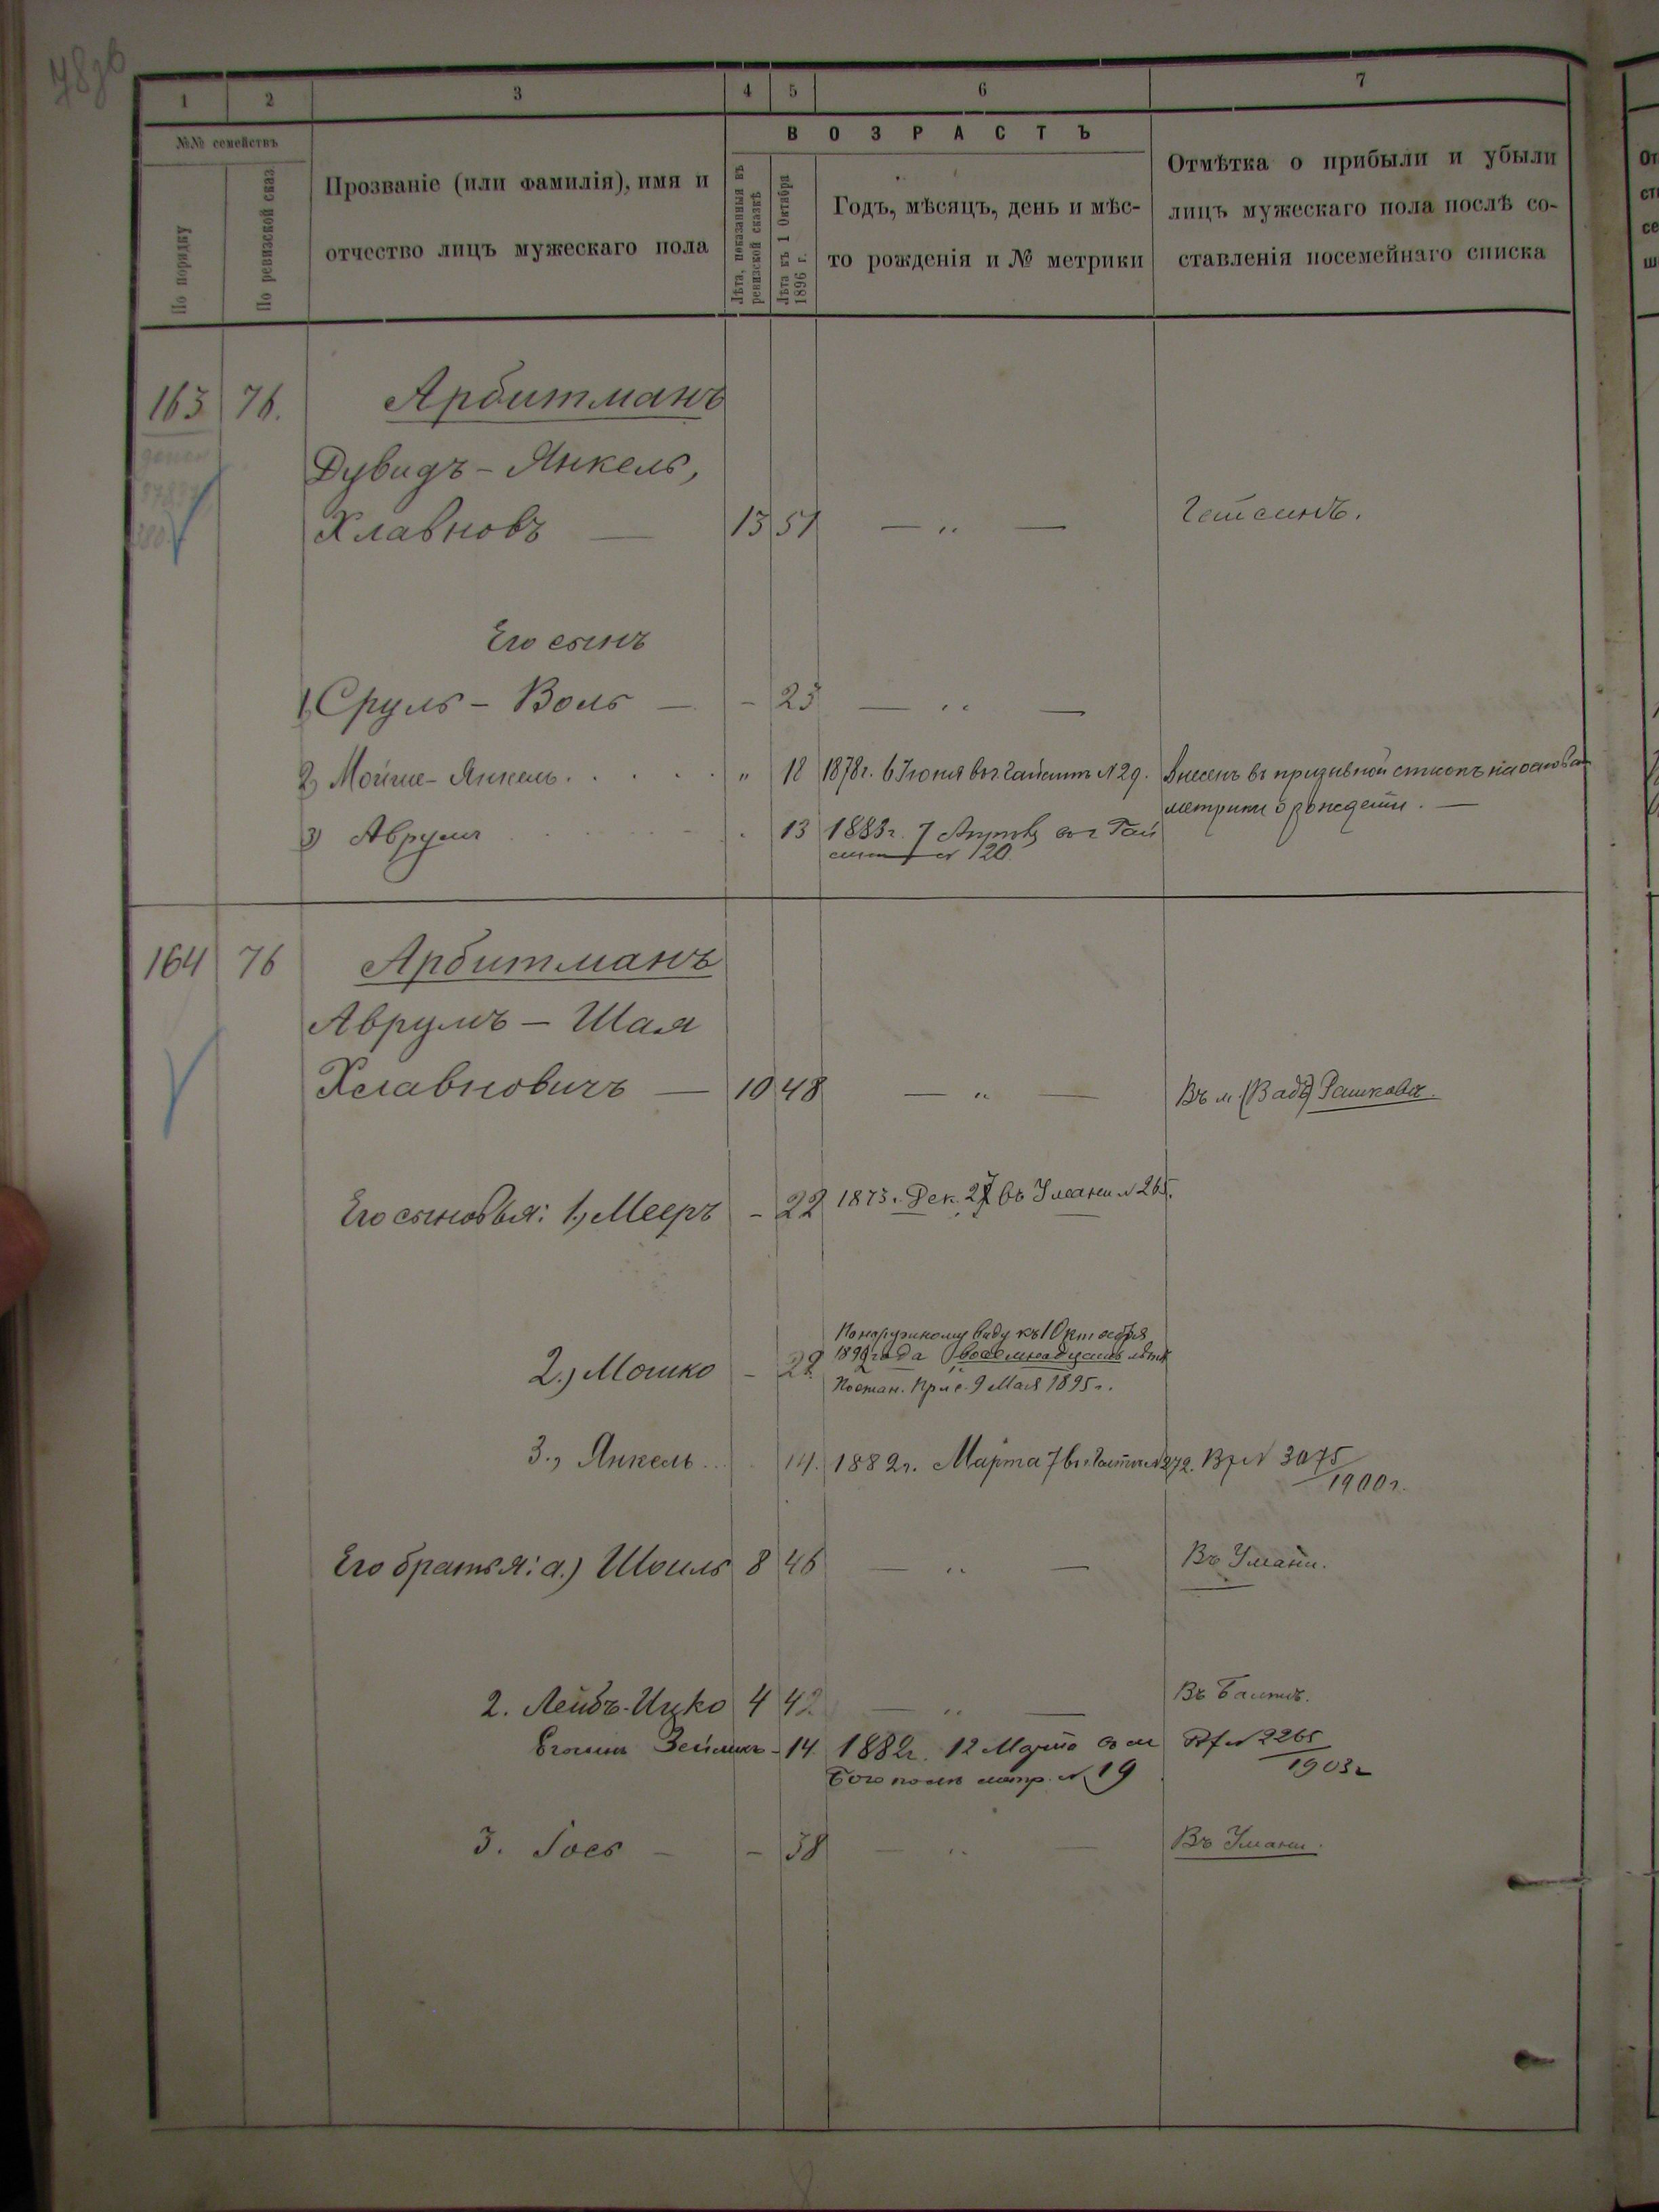 1 2 3 4 5 6 7
№№ семействъ
По порядку
По ревизской сказ.
Прозваніе (или фамилія), имя и
отчество лицъ мужескаго пола
ВОЗРАСТЪ
Лѣта, показанныя въ
ревизской сказкѣ
Лѣта къ 1 Октября
1896 г.
Годъ, мѣсяцъ, день и мѣс-
то рожденія и № метрики
Отмѣтка о прибыли и убыли
лицъ мужескаго пола послѣ со-
ставленія посемейнаго списка
163 76. Арбитманъ
Дувидъ - Янкель,
Хлавновъ — 15 51 — „ —
Его сынъ
1, Сруль - Воль — - 25 — „ —
2) Мойше - Янкель. . . . . „ 18 1878г. 6 Іюня въ г. Гайсинъ № 29. Внесенъ въ призывной списокъ на основан
метрики о рожденіи. —
3) Аврумъ 13 1883г. 7
№ 120.
164 76 Арбитманъ
Аврумъ - Шая
Хлавновичъ — 10 48 — „ — Въ м. Рашковъ.
Его сыновья: 1., Мееръ - 22 1873г. Дек. 27 въ Умани № 265.
2.) Мошко - 22 По наружному виду къ 1 Октября
года восемнадцать лѣтъ
Постан. 9 Мая 1895г.
3., Янкель... 14. 1882г. Марта 7 № 272. № 3075
1900г.
Его братья: а.) Шоиль 8 46 — „ — Въ Умани.
2. Лейбъ-Ицко 4 42 — „ — Въ Балтѣ.
Его сынъ Зейликъ - 14 1882г. 12 Марта въ м № 2265
1903г
Богополѣ метр. № 19
3. Іось - - 38 — „ — Въ Умани.